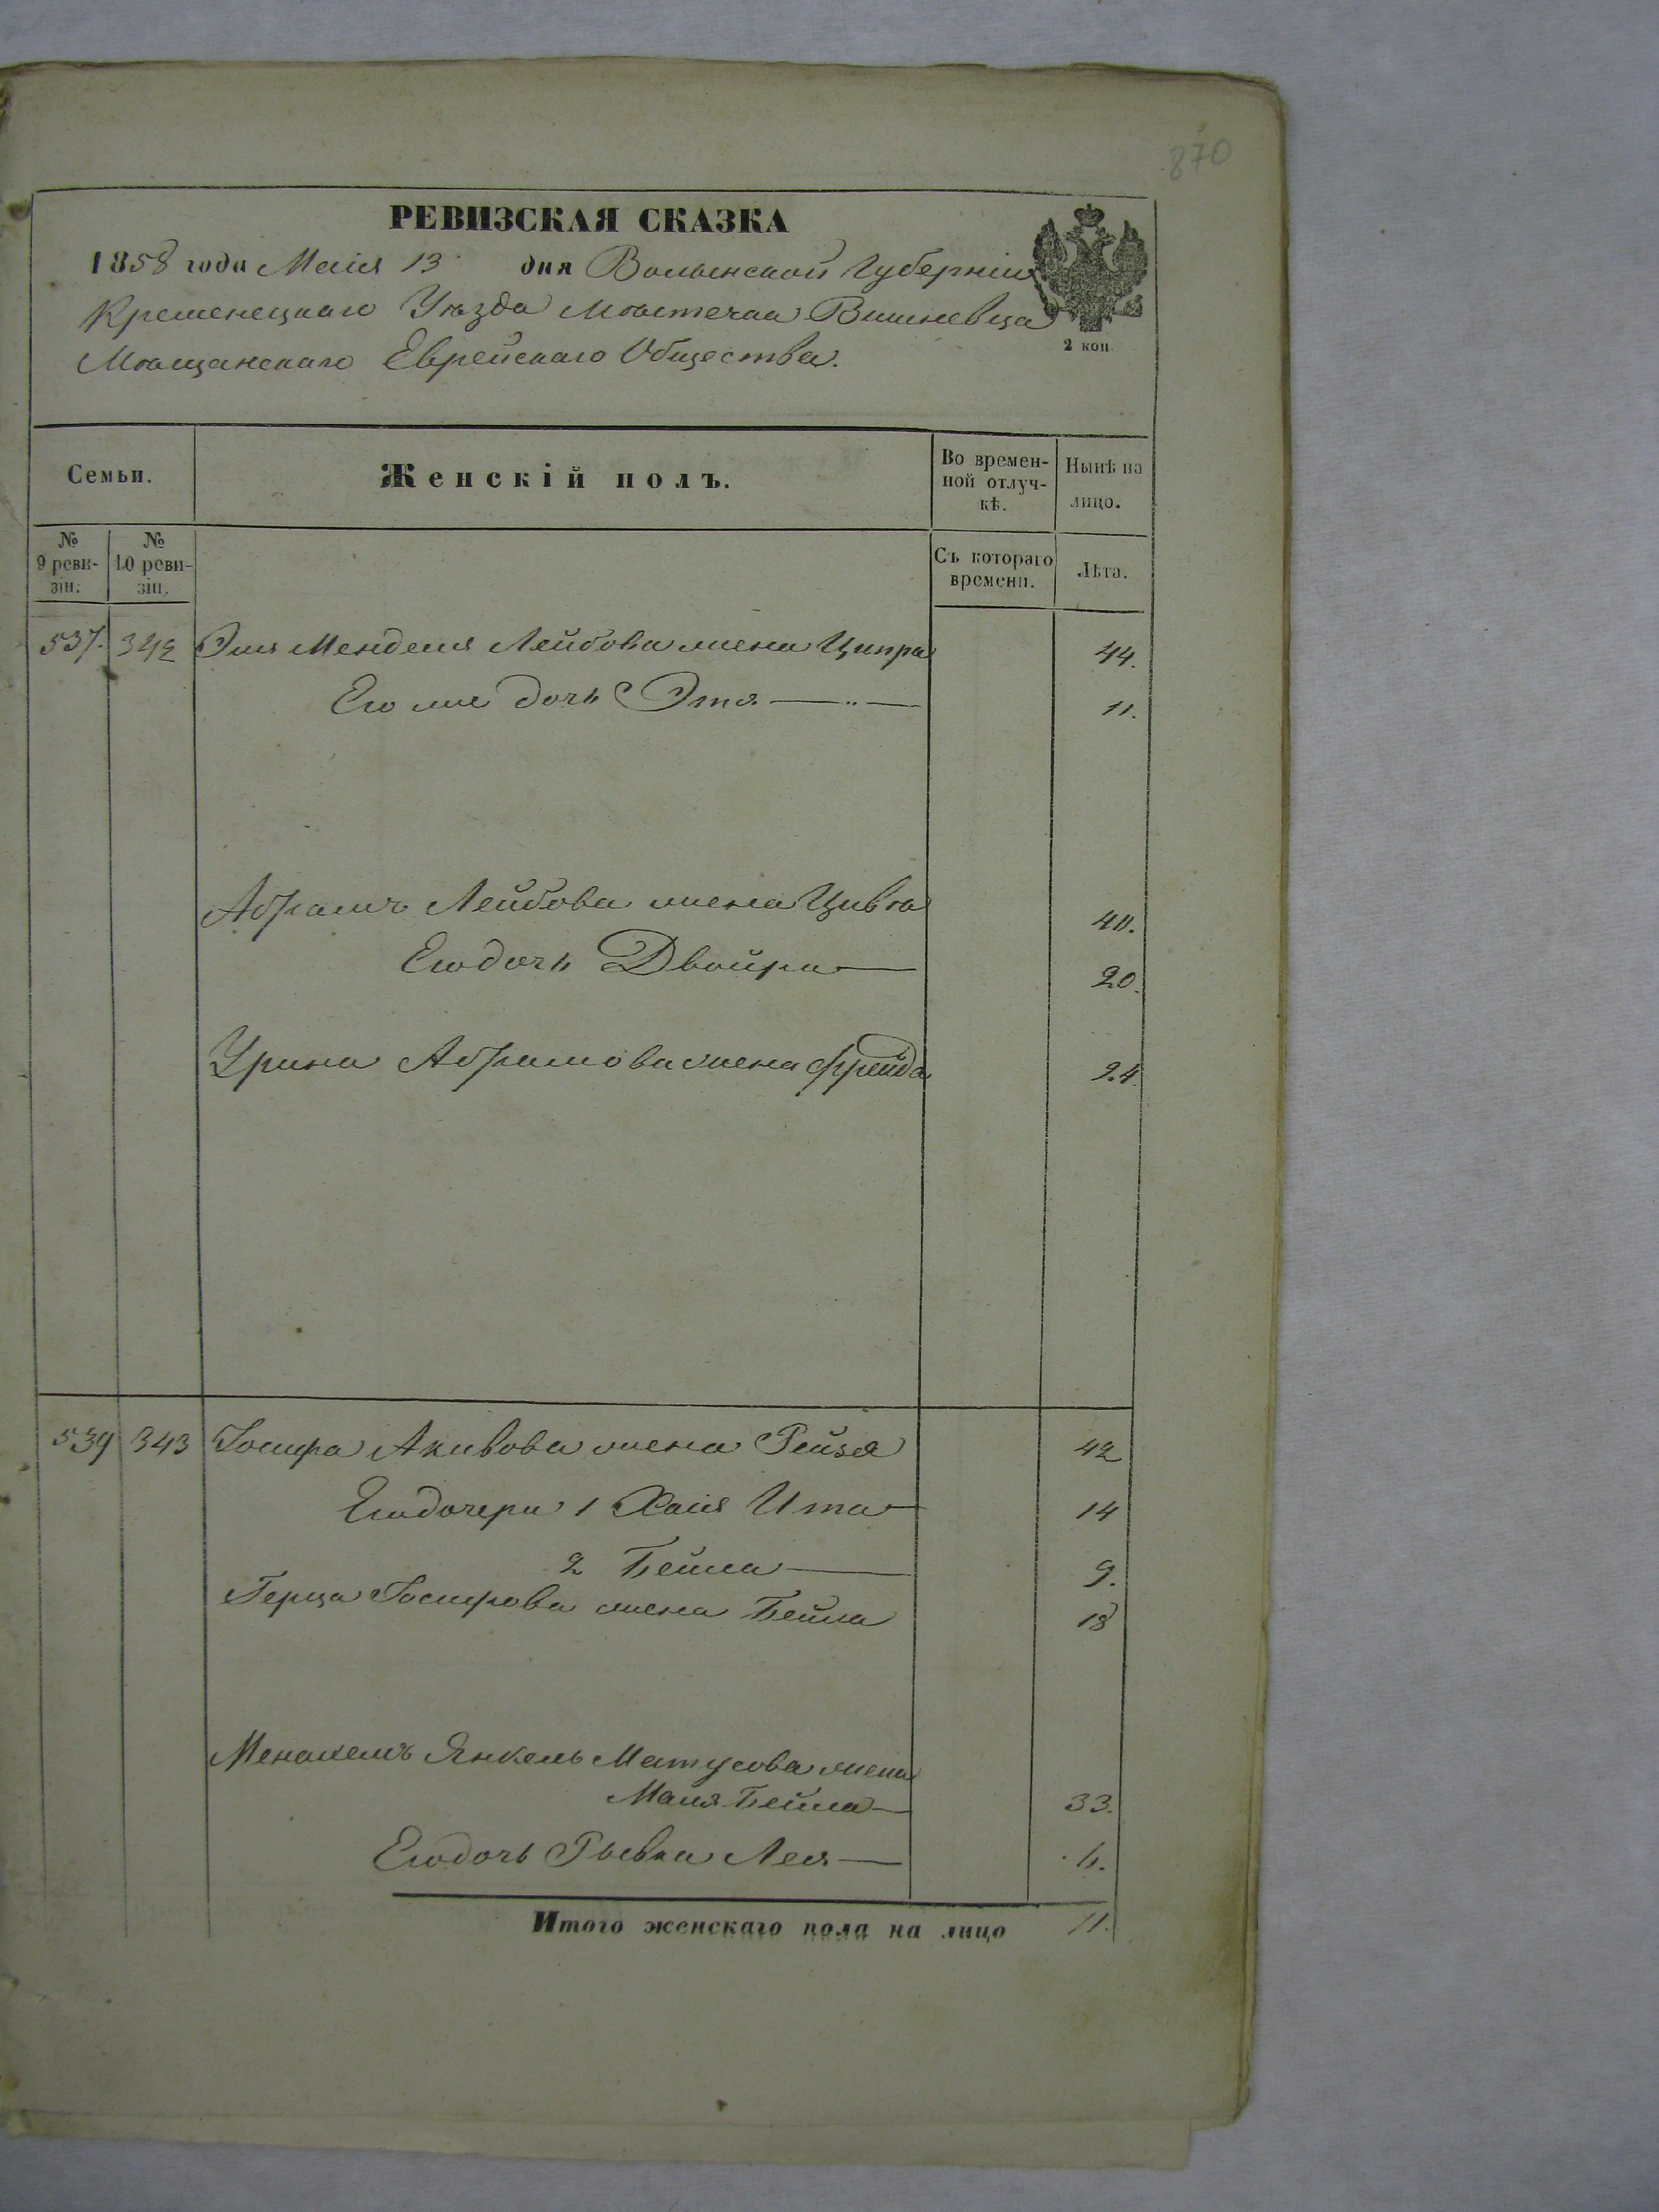 870
РЕВИЗСКАЯ СКАЗКА
1858 года Маія 13 дня Волынской Губерніи
Кременецкаго Уѣзда Мѣстечка Вишневца
2 коп.
Мѣщанскаго Еврейскаго Общества.
Семьи. Женскій полъ. Во времен- Нынѣ на
ной отлуч- лицо.
кѣ.
№ №
9 реви- 10 реви- Съ котораго Лѣта.
зіи. зіи. времени.
537. 342 Эля Менделя Лейбова жена Ципра 44.
Его же дочь Этя — „ — 11.
Абрамъ Лейбова жена Цивя 40.
Его дочь Двойра — 20.
Урина Абрамова жена Фрейда 24.
539 343 Іосифа Акивова жена Рейзя 42
Его дочери 1 Хаія Ита — 14
2 Бейла — 9.
Герца Іосифова жена Бейла 18
Менахемъ Янкель Матусова жена
Маля Бейла — 33.
Его дочь Рывка Лея —
Итого женскаго пола на лицо 11.